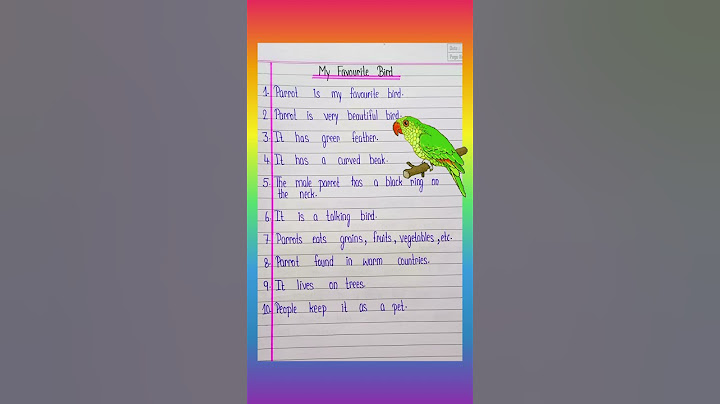 Date
Page
My Favourite Bird
1. Parrot is my favourite bird.
2. Parrot is very beautiful bird.
3. It has green feather.
4. It has a curved beak.
5. The male parrot has a black ring on
the neck.
6. It is a talking bird.
7. Parrots eats grains, fruits, vegetables, etc.
8. Parrot found in warm countries.
9. It lives on trees.
10. People keep it as a pet.